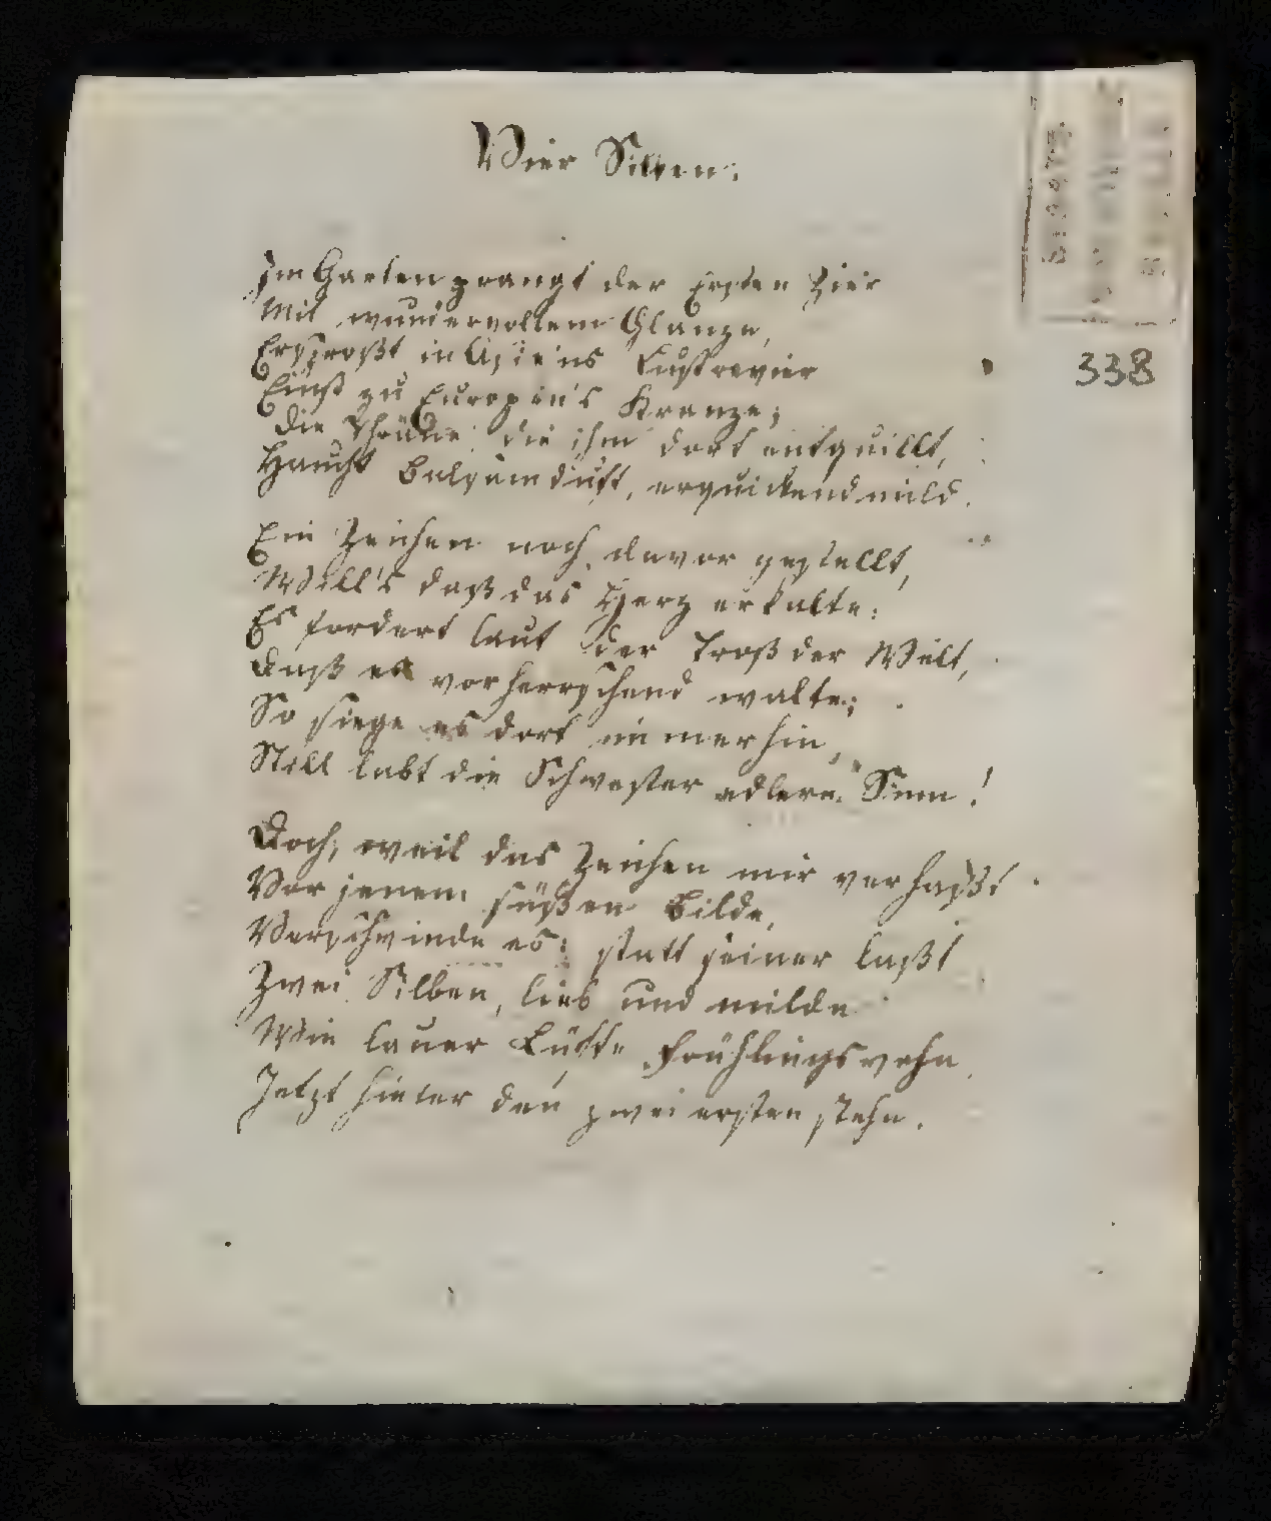 Vier Silben.
Im Garten prangt der Ersten Zier
Mit wundervollem Glanze,
Ersproßt in Asiens Lustrevier
Einst zu Europen's Kranze;
Die Thräne, die ihm dort entquillt,
Haucht Balsamduft, erquickend mild.
Ein Zeichen noch davor gestellt,
Will's daß das Herz erkalte:
Es fordert laut der Troß der Welt,
Daß es vorherrschend walte;
So siege es dort immerhin,
Still labt die Schwester edlern Sinn!
Doch, weil das Zeichen mir verhaßt
Vor jenem süßen Bilde,
Verschwinde es: statt seiner laßt
Zwei Silben, lieb und milde
Wie lauer Lüfte Frühlingswehn
Jetzt hinter den zwei ersten stehn.
338